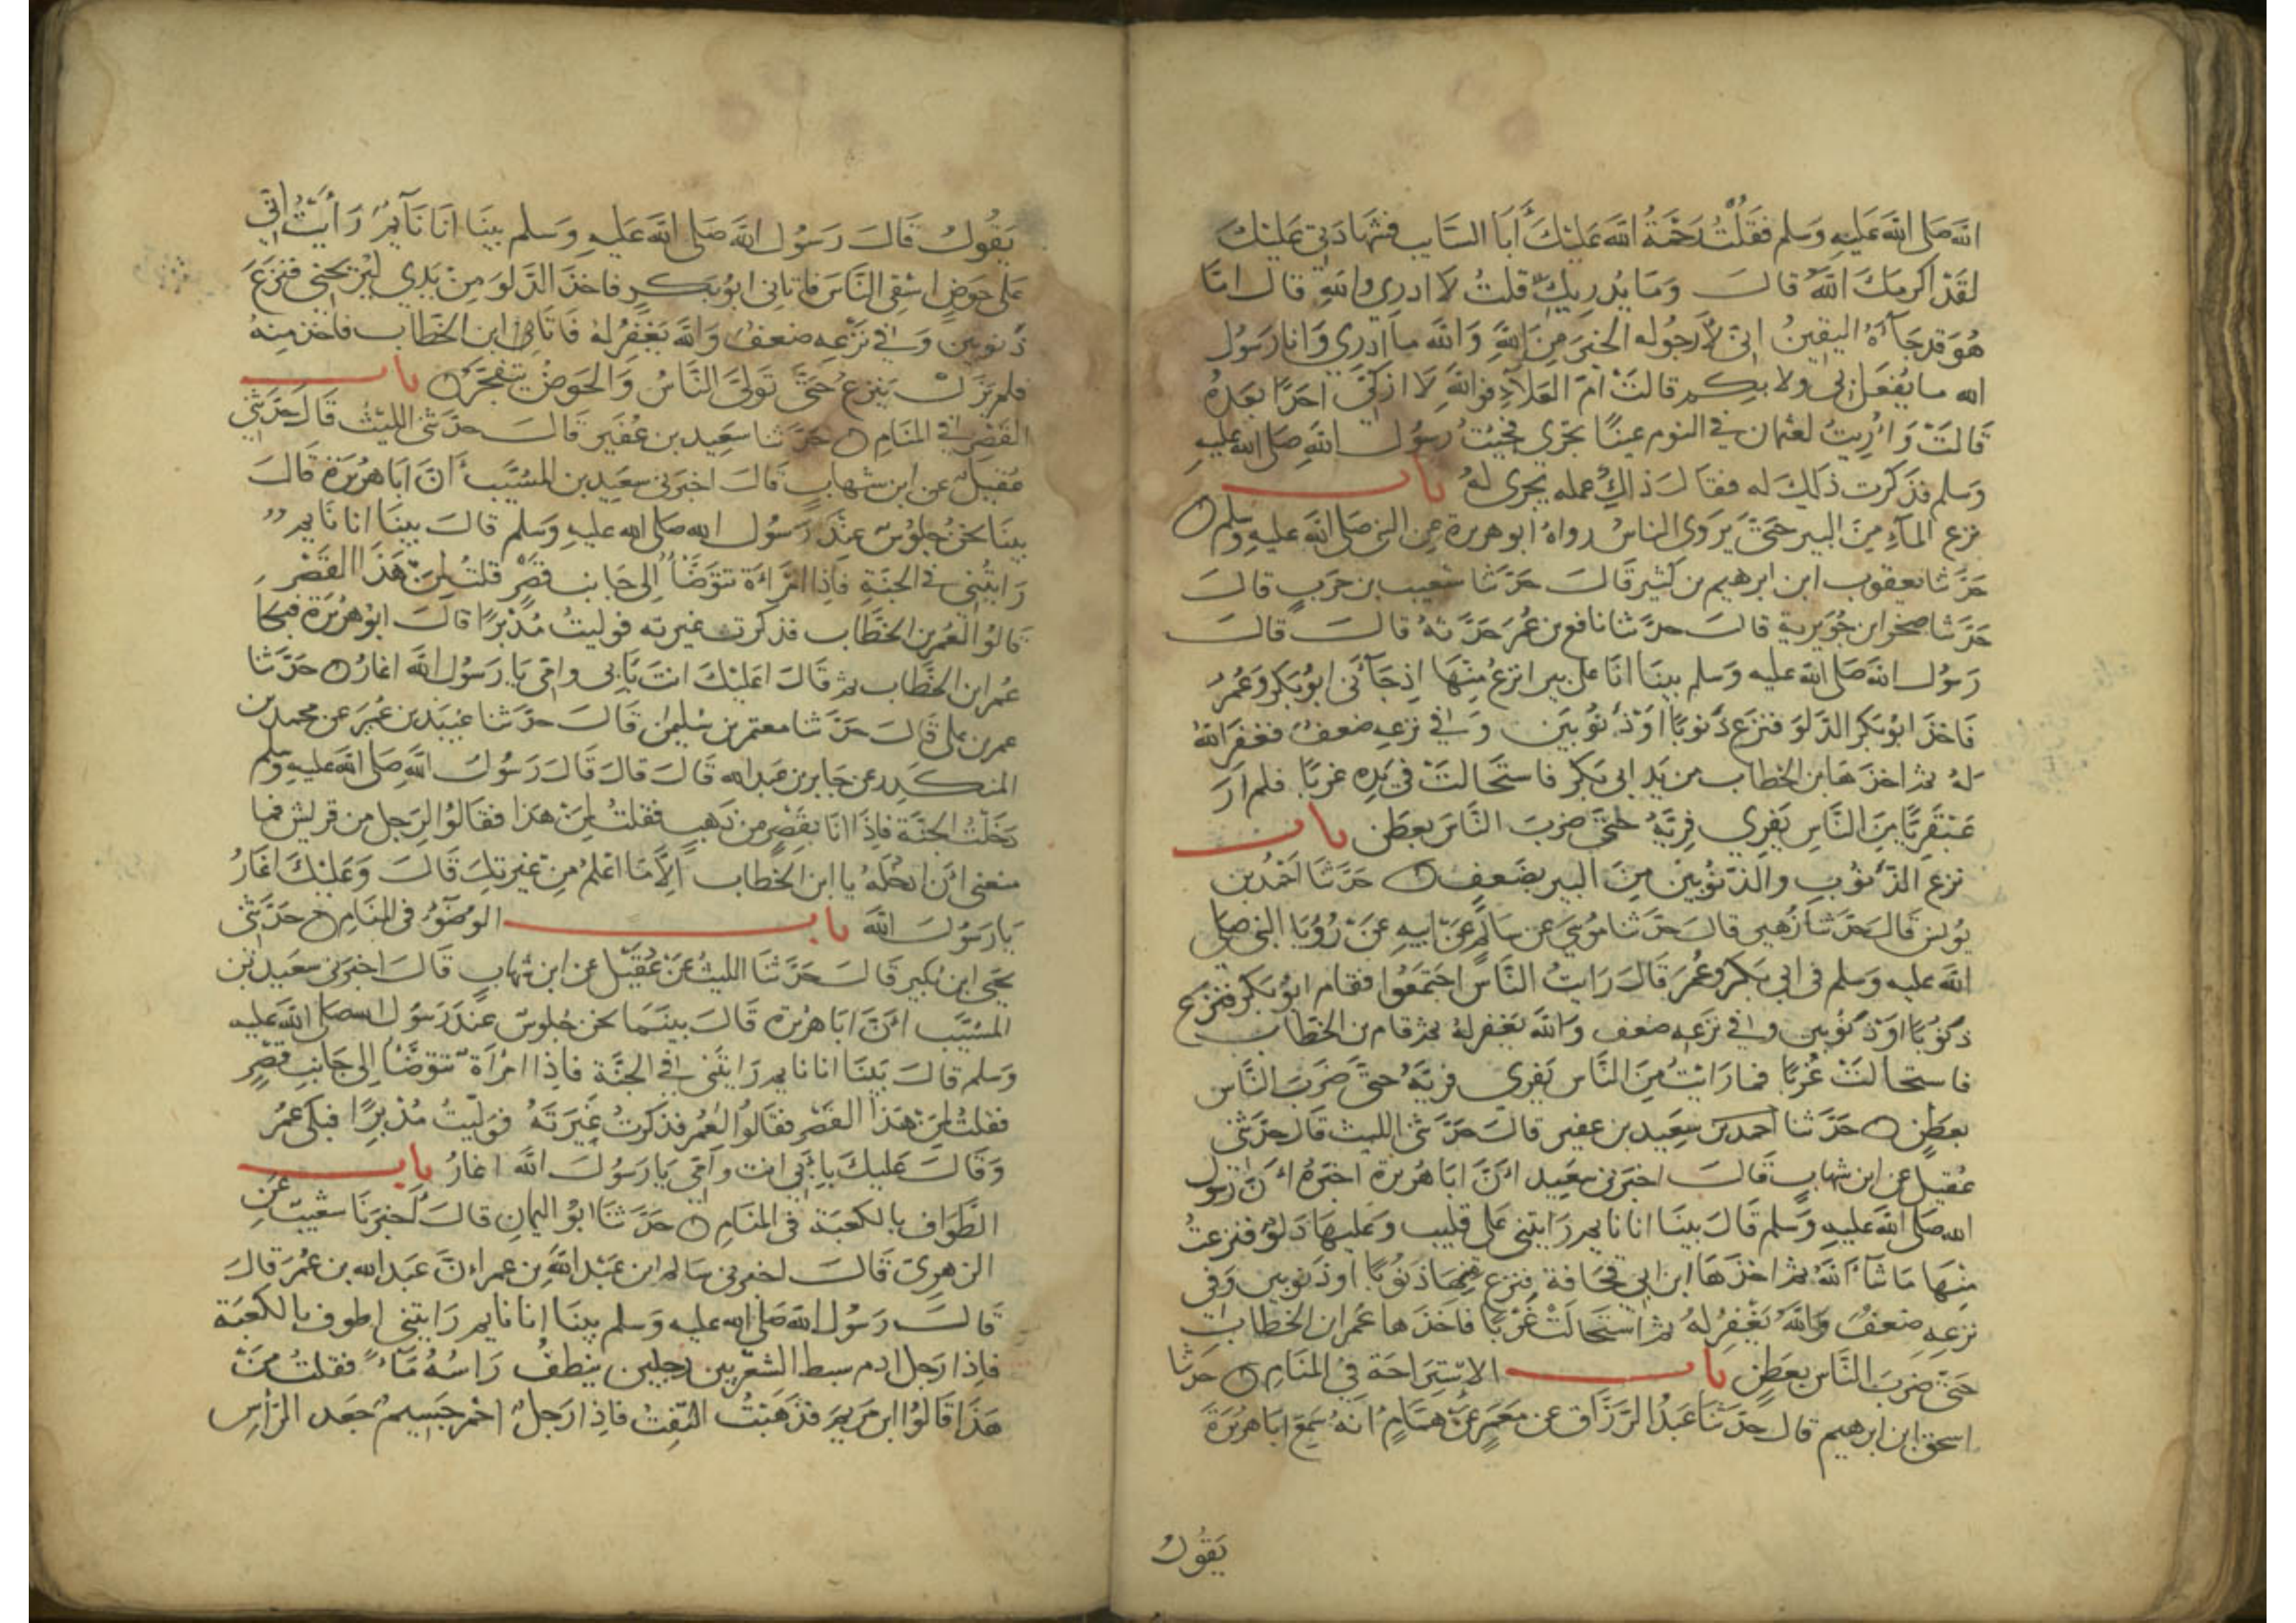 الله صلى الله عليه وسلم فقلت رحمة الله عليك أبا السايب فشهادتي عليك
لقد اكرمك الله قال وما يدريك قلت لا ادري والله قال اما
هو قد جآءه اليقين اني لارجوله الخير من الله والله ما ادري وانا رسول
الله ما يفعل بي ولا بكم قالت ام العلآء فوالله لا ازكي احدا بعده
قالت وأريت لعثمان في النوم عينا تجري فجيت رسول الله صلى الله عليه
وسلم فذكرت ذلك له فقال ذاك عمله يجرى له باب
نزع المآء من البير حتى يروى الناس رواه ابو هريرة عن النبي صلى الله عليه وسلم
حدثنا يعقوب ابن ابرهيم بن كثير قال حدثنا شعيب بن حرب قال
حدثنا صخر ابن جويرية قال حدثنا نافع بن عمر حدثه قال قال
رسول الله صلى الله عليه وسلم بينا انا على بير انزع منها اذ جآئني ابو بكر وعمر
فاخذ ابو بكر الدلو فنزع ذنوبا او ذنوبين وفي نزعه ضعف فغفر الله
له ثم اخذها ابن الخطاب من يد ابي بكر فاستحالت في يده غربا فلم ار
عبقريا من الناس يفري فريه حتى ضرب الناس بعطن باب
نزع الذنوب والذنوبين من البير بضعف حدثنا احمد بن
يونس قال حدثنا زهير قال حدثنا موسى عن سالم عن ابيه عن رؤيا النبي صلى
الله عليه وسلم في ابي بكر وعمر قال رايت الناس اجتمعوا فقام ابو بكر فنزع
ذنوبا او ذنوبين وفي نزعه ضعف والله يغفر له ثم قام بن الخطاب
فاستحالت غربا فما رايت من الناس يفري فريه حتى ضرب الناس
بعطن حدثنا احمد بن سعيد بن عفير قال حدثني الليث قال حدثني
عقيل عن ابن شهاب قال اخبرني سعيد ان ابا هريرة اخبره ان رسول
الله صلى الله عليه وسلم قال بينا انا نايم رايتني على قليب وعليها دلو فنزعت
منها ما شآء الله ثم اخذها ابن ابي قحافة فنزع منها ذنوبا او ذنوبين وفي
نزعه ضعف والله يغفر له ثم استحالت غربا فاخذها عمر ابن الخطاب
حتى ضرب الناس بعطن باب الاستراحة في المنام حدثنا
اسحق ابن ابرهيم قال حدثنا عبد الرزاق عن معمر عن همام انه سمع ابا هريرة
يقول
يقول قال رسول الله صلى الله عليه وسلم بينا انا نآيم رأيت اني
على حوض اسقي الناس فاتاني ابو بكر فاخذ الدلو من يدي ليريحني فنزع
ذنوبين وفي نزعه ضعف والله يغفر له فاتاني ابن الخطاب فاخذ منه
فلم يزل ينزع حتى تولى الناس والحوض يتفجر باب
القصر في المنام حدثنا سعيد بن عفير قال حدثني الليث قال حدثني
عقيل عن ابن شهاب قال اخبرني سعيد بن المسيب أن ابا هريرة قال
بينا نحن جلوس عند رسول الله صلى الله عليه وسلم قال بينا انا نايم
رايتني في الجنة فاذا امراءة تتوضأ الى جانب قصر قلت لمن هذا القصر
قالوا لعمر بن الخطاب فذكرت غيرته فوليت مدبرا قال ابو هريرة فبكا
عمر ابن الخطاب ثم قال اعليك انت بابي وامي يا رسول الله اغار حدثنا
عمر بن علي قال حدثنا معتمر بن سليمن قال حدثنا عبيد بن عمر عن محمد بن
المنكدر عن جابر بن عبد الله قال قال قال رسول الله صلى الله عليه وسلم
دخلت الجنة فاذا انا بقصر من ذهب فقلت لمن هذا فقالوا لرجل من قريش فما
منعني ان ادخله يا ابن الخطاب الا ما اعلم من غيرتك قال وعليك اغار
يا رسول الله باب الوضوء في المنام حدثني
يحيى ابن بكير قال حدثنا الليث عن عقيل عن ابن شهاب قال اخبرني سعيد بن
المسيب ان ابا هريرة قال بينما نحن جلوس عند رسول الله صلى الله عليه
وسلم قال بينا انا نايم رايتني في الجنة فاذا امرأة تتوضأ الى جانب قصر
فقلت لمن هذا القصر فقالوا لعمر فذكرت غيرته فوليت مدبرا فبكى عمر
وقال عليك بابي انت وامي يا رسول الله اغار باب
الطواف بالكعبة في المنام حدثنا ابو اليمان قال اخبرنا شعيب عن
الزهري قال اخبرني سالم ابن عبد الله بن عمر ان عبد الله بن عمر قال
قال رسول الله صلى الله عليه وسلم بينا انا نايم رايتني اطوف بالكعبة
فاذا رجل ادم سبط الشعر بين رجلين ينطف راسه مآء فقلت من
هذا قالوا ابن مريم فذهبت التفت فاذا رجل احمر جسيم جعد الرأس